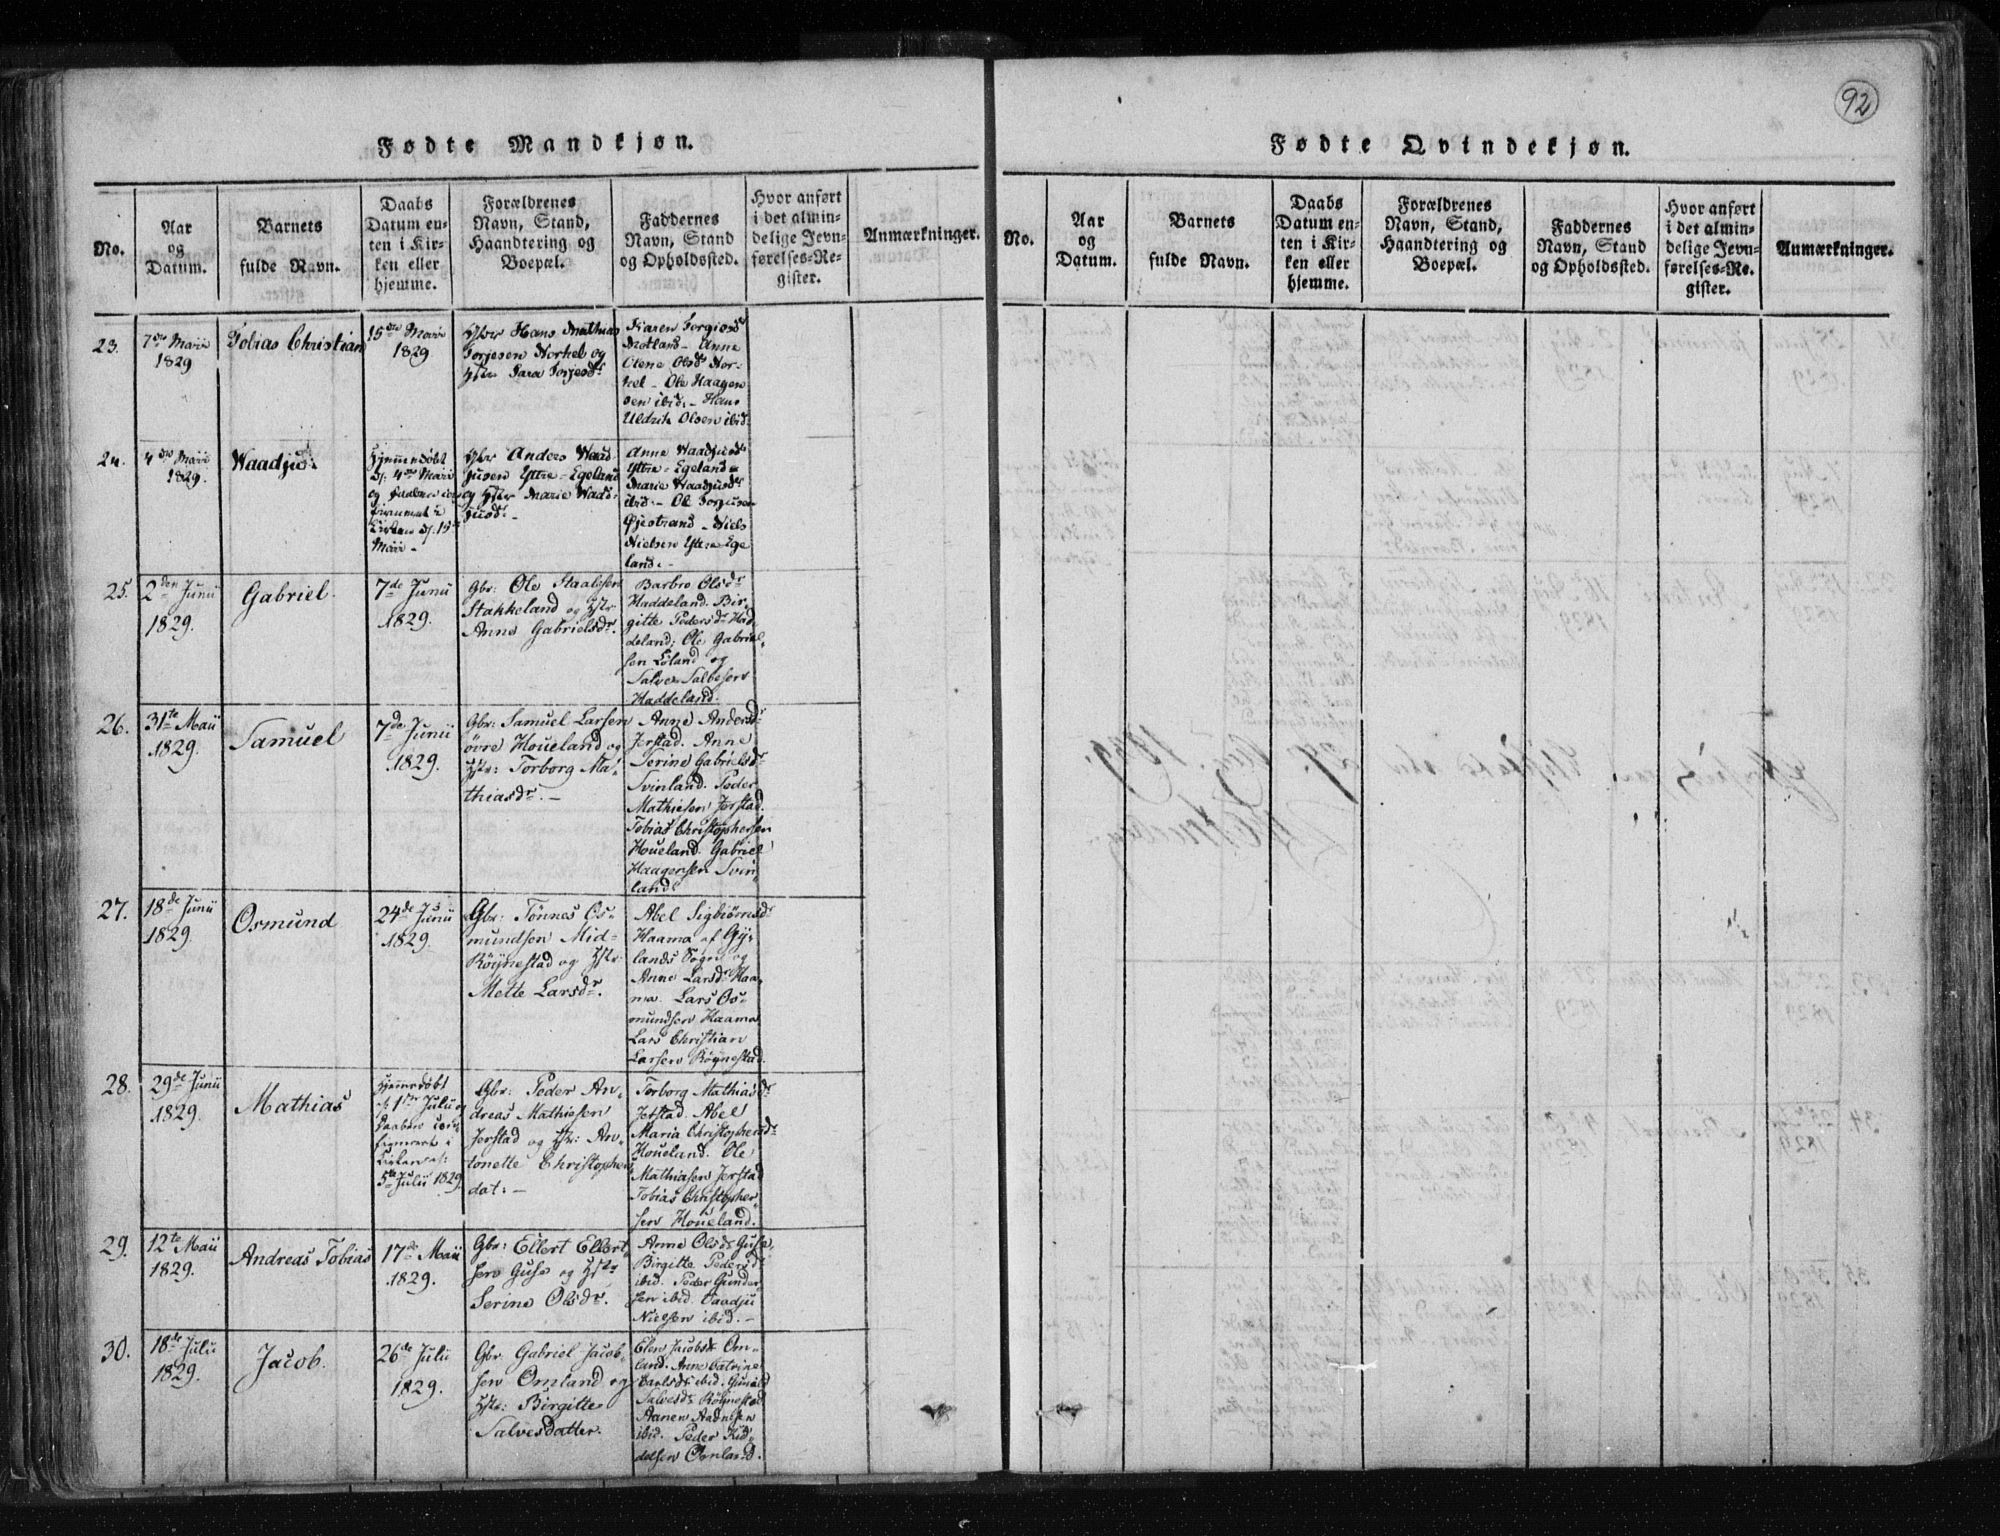 92
Fødte Mandkjøn.
No.
Aar
og
Datum.
Barnets
fulde Navn.
Daabs
Datum en-
ten i Kir-
ken eller
hjemme.
Forældrenes
Navn, Stand,
Haandtering og
Boepæl.
Faddernes
Navn, Stand
og Opholdssted.
Hvor anført
i det almin-
delige Jevn-
førelses-Re-
gister.
Anmærkninger.
23.
7de Martii
1829
Tobias Christian
15de Martii
1829
Hans Mathias
Torjesen Horkel og
Sara Torjesdr
Karen Torgiesdr
Motland - Anne
Olene Olsdr Hor-
kel - Ole Haagen
sen ibid: - Hans
Uldrik Olsen ibid
24.
4de Martii
1829.
Waadju.
Hjemmedøbt
d: 4de Martii
og Daaben con
firmeret i
Kirken d: 15de
Martii -
Anders Waad-
jusen Yttre-Egeland
og Marie Waad-
jusdr -
Anne Waadjusdr
Yttre-Egeland
Marie Waadjusdr
ibid: - Ole Torjusen
Øjestrand - Niels
Nielsen Yttre Ege
land. -
25.
2den Junii
1829.
Gabriel.
7de Junii
1829.
Gbr: Ole Staalesen
Stakkeland og Hstr
Anne Gabrielsdr.
Barbro Olsdr
Haddeland. Bir-
gitte Pedersdr Had-
deland; Ole Gabriel-
sen Løland og
Salve Salvesen
Haddeland.
26.
31te Maii
1829.
Samuel
7de Junii
1829.
Gbr: Samuel Larsen
øvre Houeland og
Hstr: Torborg Ma-
thiasdr. -
Anne Andersdr
Jerstad. Anne
Serine Gabrielsdr
Svinland. Peder
Mathiesen Jerstad.
Tobias Christophersen
Houeland. Gabriel
Haagensen Svin-
land
27.
18de Junii
1829.
Osmund
24de Junii
1829.
Gbr: Tønnes Os-
mundsen Mid-
Röÿnestad og Hstr:
Mette Larsdr.
Abel Sigbiørnsdr
Haama af Gy-
lands Sogn og
Anne Larsdr Haa-
ma. Lars Os-
mundsen Haama
Lars Christian
Larsen Röÿnestad.
28.
29de Junii
1829.
Mathias
Hjemmedøbt
d: 1ste Julii og
Daaben con-
firmeret i
Kirken d:
5te Julii 1829.
Gbr: Peder An-
dreas Mathiesen
Jerstad og Hstr: An-
tonette Christopher
dat: -
Torborg Mathiasdr
Jerstad. Abel
Maria Christophersdr
Houeland. Ole
Mathiasen Jerstad
Tobias Christopher-
sen Houeland.
29.
12te Maii
1829.
Andreas Tobias
17de Maii
1829.
Gbr: Ellert Ellert-
sen Guse og Hstr
Serine Olsdr.
Anne Olsdr Guse,
Birgitte Pedersdr
ibid. Peder Gunder-
sen ibid. Vaadju
Nielsen ibid. -
30.
18de Julii
1829.
Jacob.
26de Julii
1829.
Gbr Gabriel Jacob-
sen Omland og
Hstr: Birgitte
Salvesdatter.
Elen Jacobsdr Om-
land. Anne Catrine
Carlsdr ibid. Gunild
Salvesdr Röÿnestad
Aanen Aadnesen
ibid. Peder Kid-
delsen Omland.
Fødte Qvindekjøn.
No.
Aar
og
Datum.
Barnets
fulde Navn.
Daabs
Datum en-
ten i Kir-
ken eller
hjemme.
Forældrenes
Navn, Stand,
Haandtering og
Boepæl.
Faddernes
Navn, Stand
og Opholdssted.
Hvor anført
i det almin-
delige Jevn-
førelses-Re-
gister.
Anmærkninger.